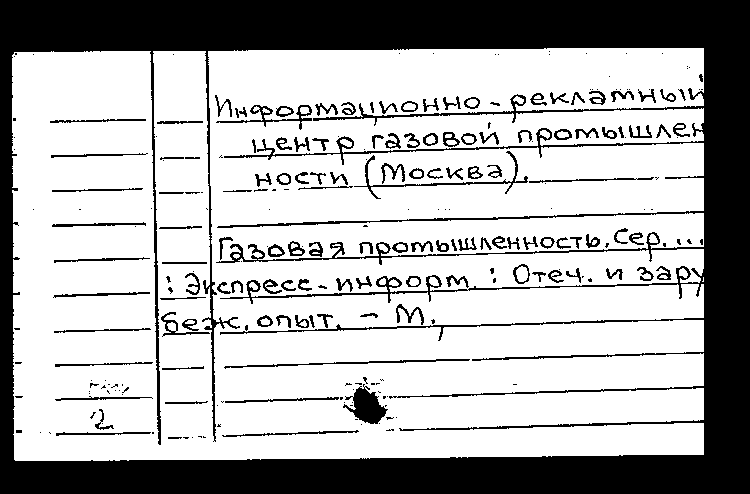 Информационно-рекламный
центр газовой промышлен
ности (Москва).
Газовая промышленность. Сер. ...
: Экспресс-информ. : Отеч. и зару
беж. опыт. - М.,
2